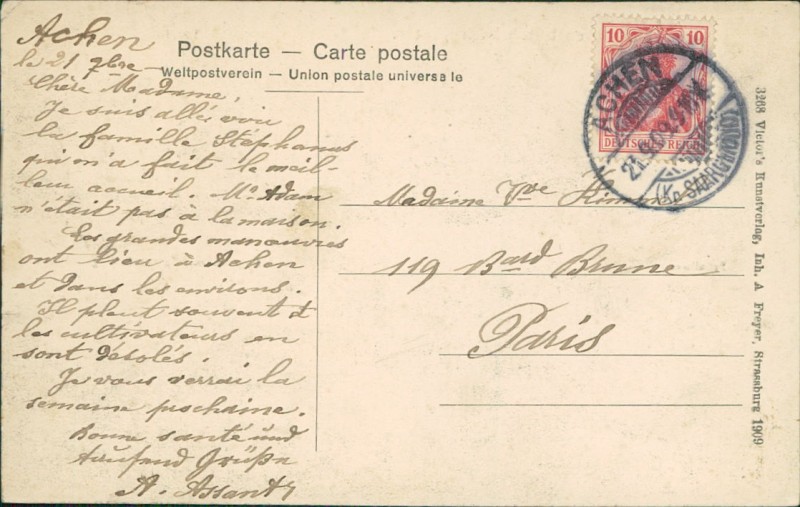 Achen
le 21 7bre
Chère Madame,
Je suis allée voir
la famille Stéphanus
qui m'a fait le meil-
leur accueil. Mr. Adam
n'était pas à la maison.
Les grandes manœuvres
ont lieu à Achen
et dans les environs.
Il pleut souvent et
les cultivateurs en
sont désolés.
Je vous verrai la
semaine prochaine.
Bonne santé und
tausend Grüße
A. Assant
Postkarte — Carte postale
Weltpostverein — Union postale universelle
10 10
DEUTSCHES REICH
ACHEN
21.9.09
(Kr. SAARGEMÜND)
Madame Vve
119 Bard Brune
Paris
3268 Victor's Kunstverlag, Inh. A Freyer, Strassburg 1909